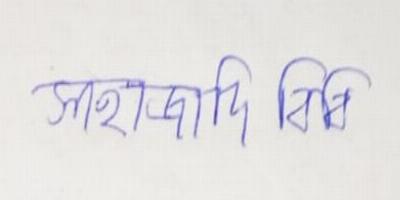 সাহাজাদি বিবি